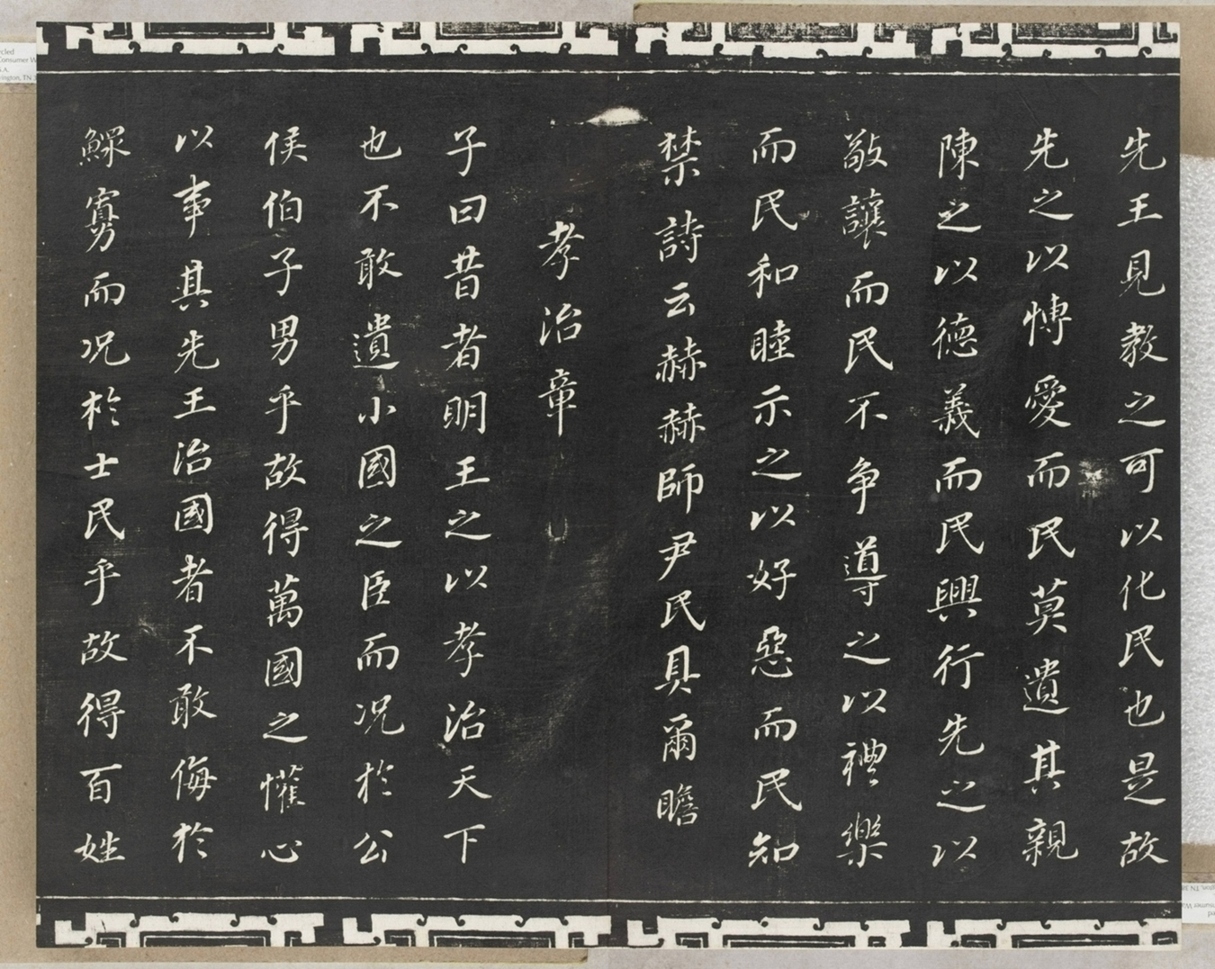 先王見教之可以化民也是故
先之以博愛而民莫遺其親
陳之以德義而民興行先之以
敬讓而民不争導之以禮樂
而民和睦示之以好惡而民知
禁詩云赫赫師尹民具爾瞻
孝治章
子曰昔者明王之以孝治天下
也不敢遺小國之臣而况於公
侯伯子男乎故得萬國之懽心
以事其先王治國者不敢侮於
鰥寡而况於士民乎故得百姓